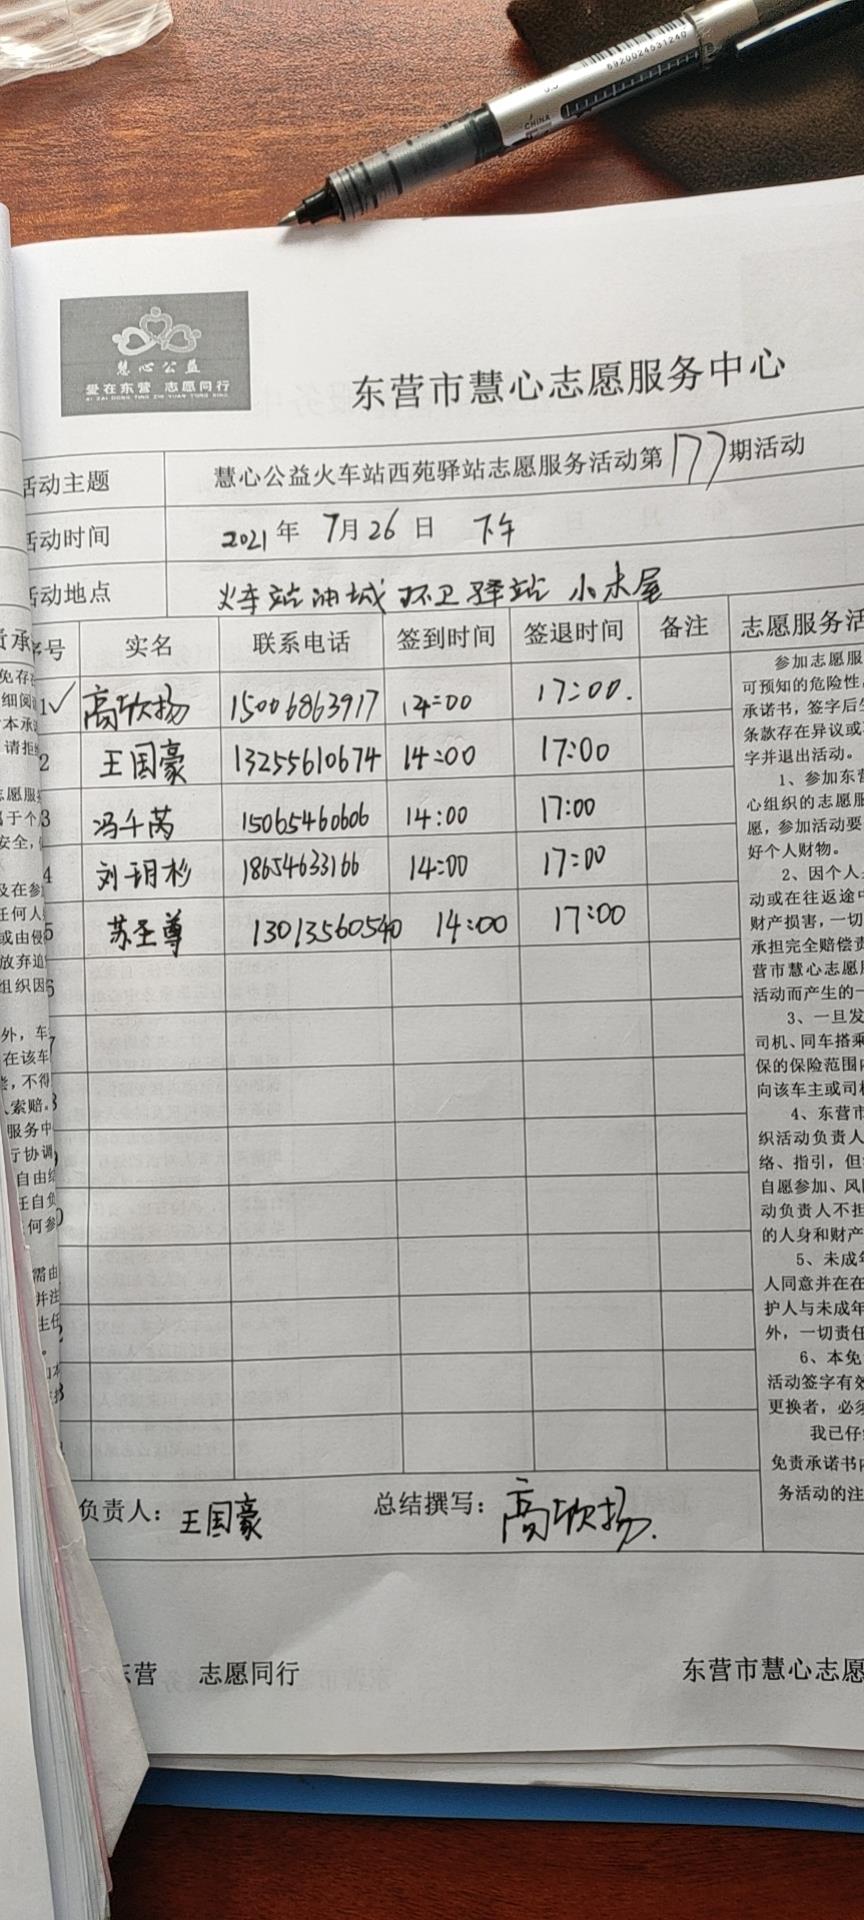 CHINA
6920024531240
慧心公益
爱在东营 志愿同行
AI ZAI DONG YING ZHI YUAN TONG XING
东营市慧心志愿服务中心
活动主题 慧心公益火车站西苑驿站志愿服务活动第177期活动
活动时间 2021年 7月26日 下午
活动地点 火车站油城环卫驿站 小木屋
序号 实名 联系电话 签到时间 签退时间 备注 志愿服务活
1✓ 高欣扬 15006863917 14:00 17:00.
2 王国豪 13255610674 14:00 17:00
3 冯千芮 15065460606 14:00 17:00
4 刘玥杉 18654633166 14:00 17:00
5 苏圣尊 13013560540 14:00 17:00
6
7
8
参加志愿服
可预知的危险性
承诺书,签字后生
条款存在异议或
字并退出活动。
1、参加东营
心组织的志愿服
愿,参加活动要
好个人财物。
2、因个人
动或在往返途中
财产损害,一切
承担完全赔偿责
营市慧心志愿服
活动而产生的一
3、一旦发
司机、同车搭乘
保的保险范围内
向该车主或司机
4、东营市
织活动负责人
络、指引,但
自愿参加、风险
动负责人不担
的人身和财产
5、未成年
人同意并在在
护人与未成年
外,一切责任
6、本免
活动签字有效
更换者,必须
我已仔细
免责承诺书内
务活动的注
负责人:王国豪 总结撰写:高欣扬.
东营 志愿同行 东营市慧心志愿